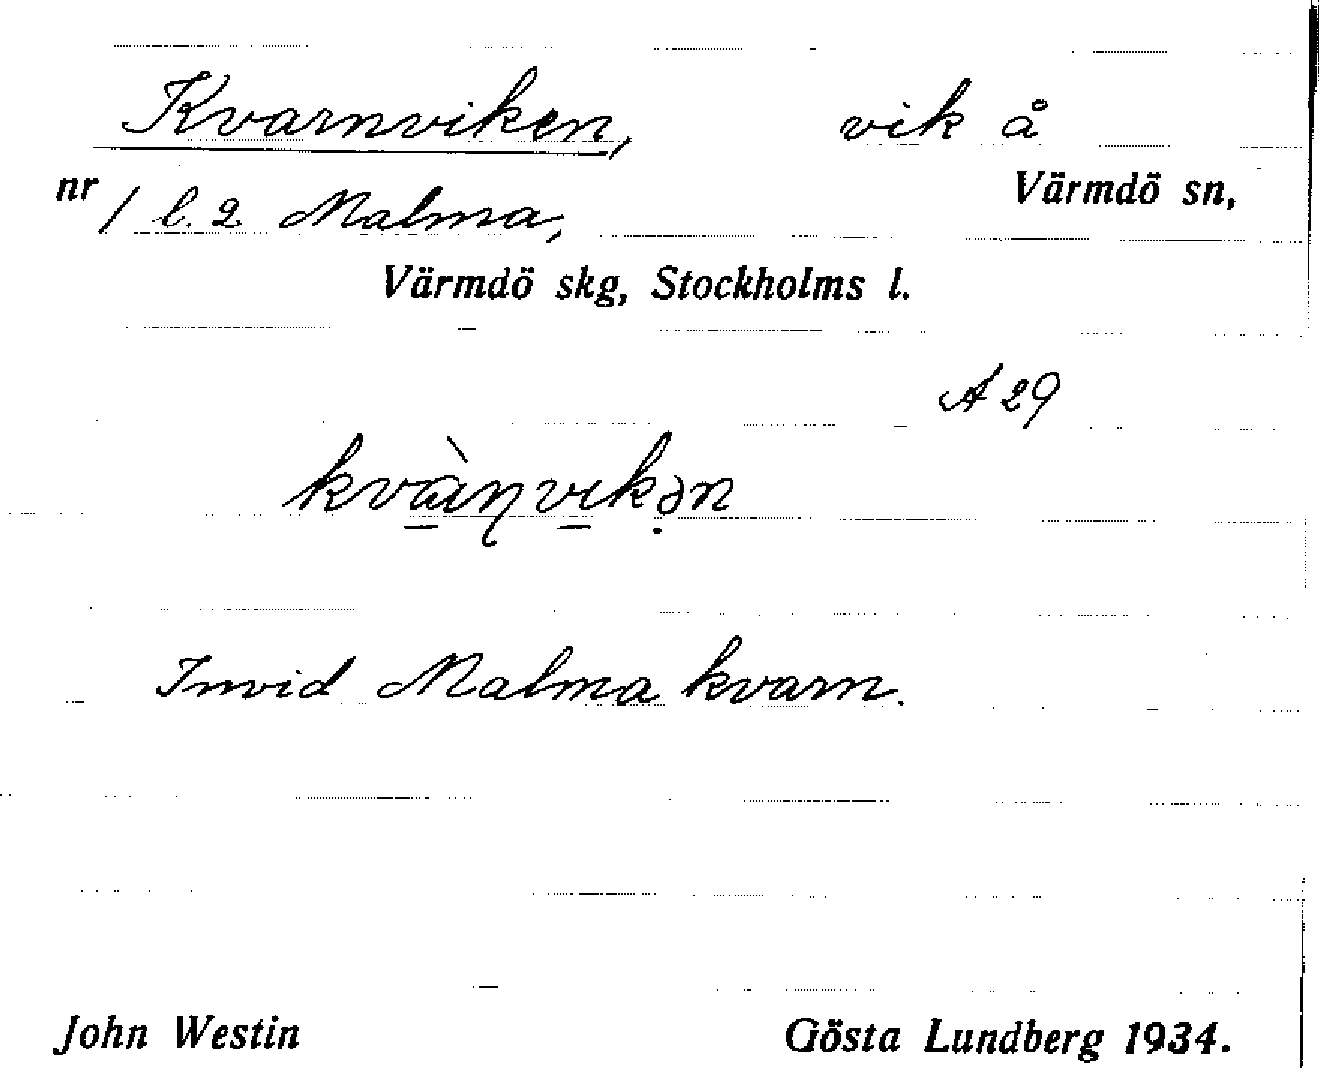 Kvarnviken, vik å
nr 1 l. 2 Malma, Värmdö sn,
Värmdö skg, Stockholms l.
A 29
kvàɳvikən
Invid Malma kvarn.
John Westin Gösta Lundberg 1934.